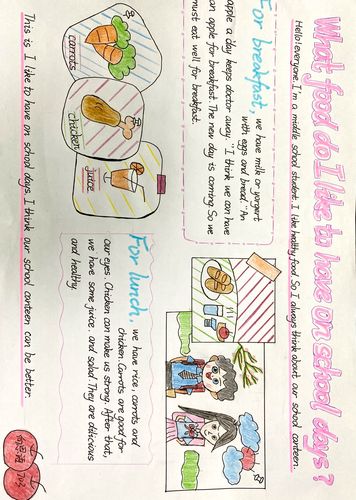 What food do I like to have on school days?
Hello! everyone. I'm a middle school student. I like healthy food. So I always think about our school canteen.
For breakfast, we have milk or yorgart
with eggs and bread. "An
apple a day keeps doctor away." I think we can have
an apple for breakfast. The new day is coming. So we
must eat well for breakfast.
carrots
chicken
juice
For lunch, we have rice, carrots and
chicken. Carrots are good for
our eyes. Chicken can make us strong. After that,
we have some juice and salad. They are delicious
and healthy.
This is I like to have on school days. I think our school canteen can be better.